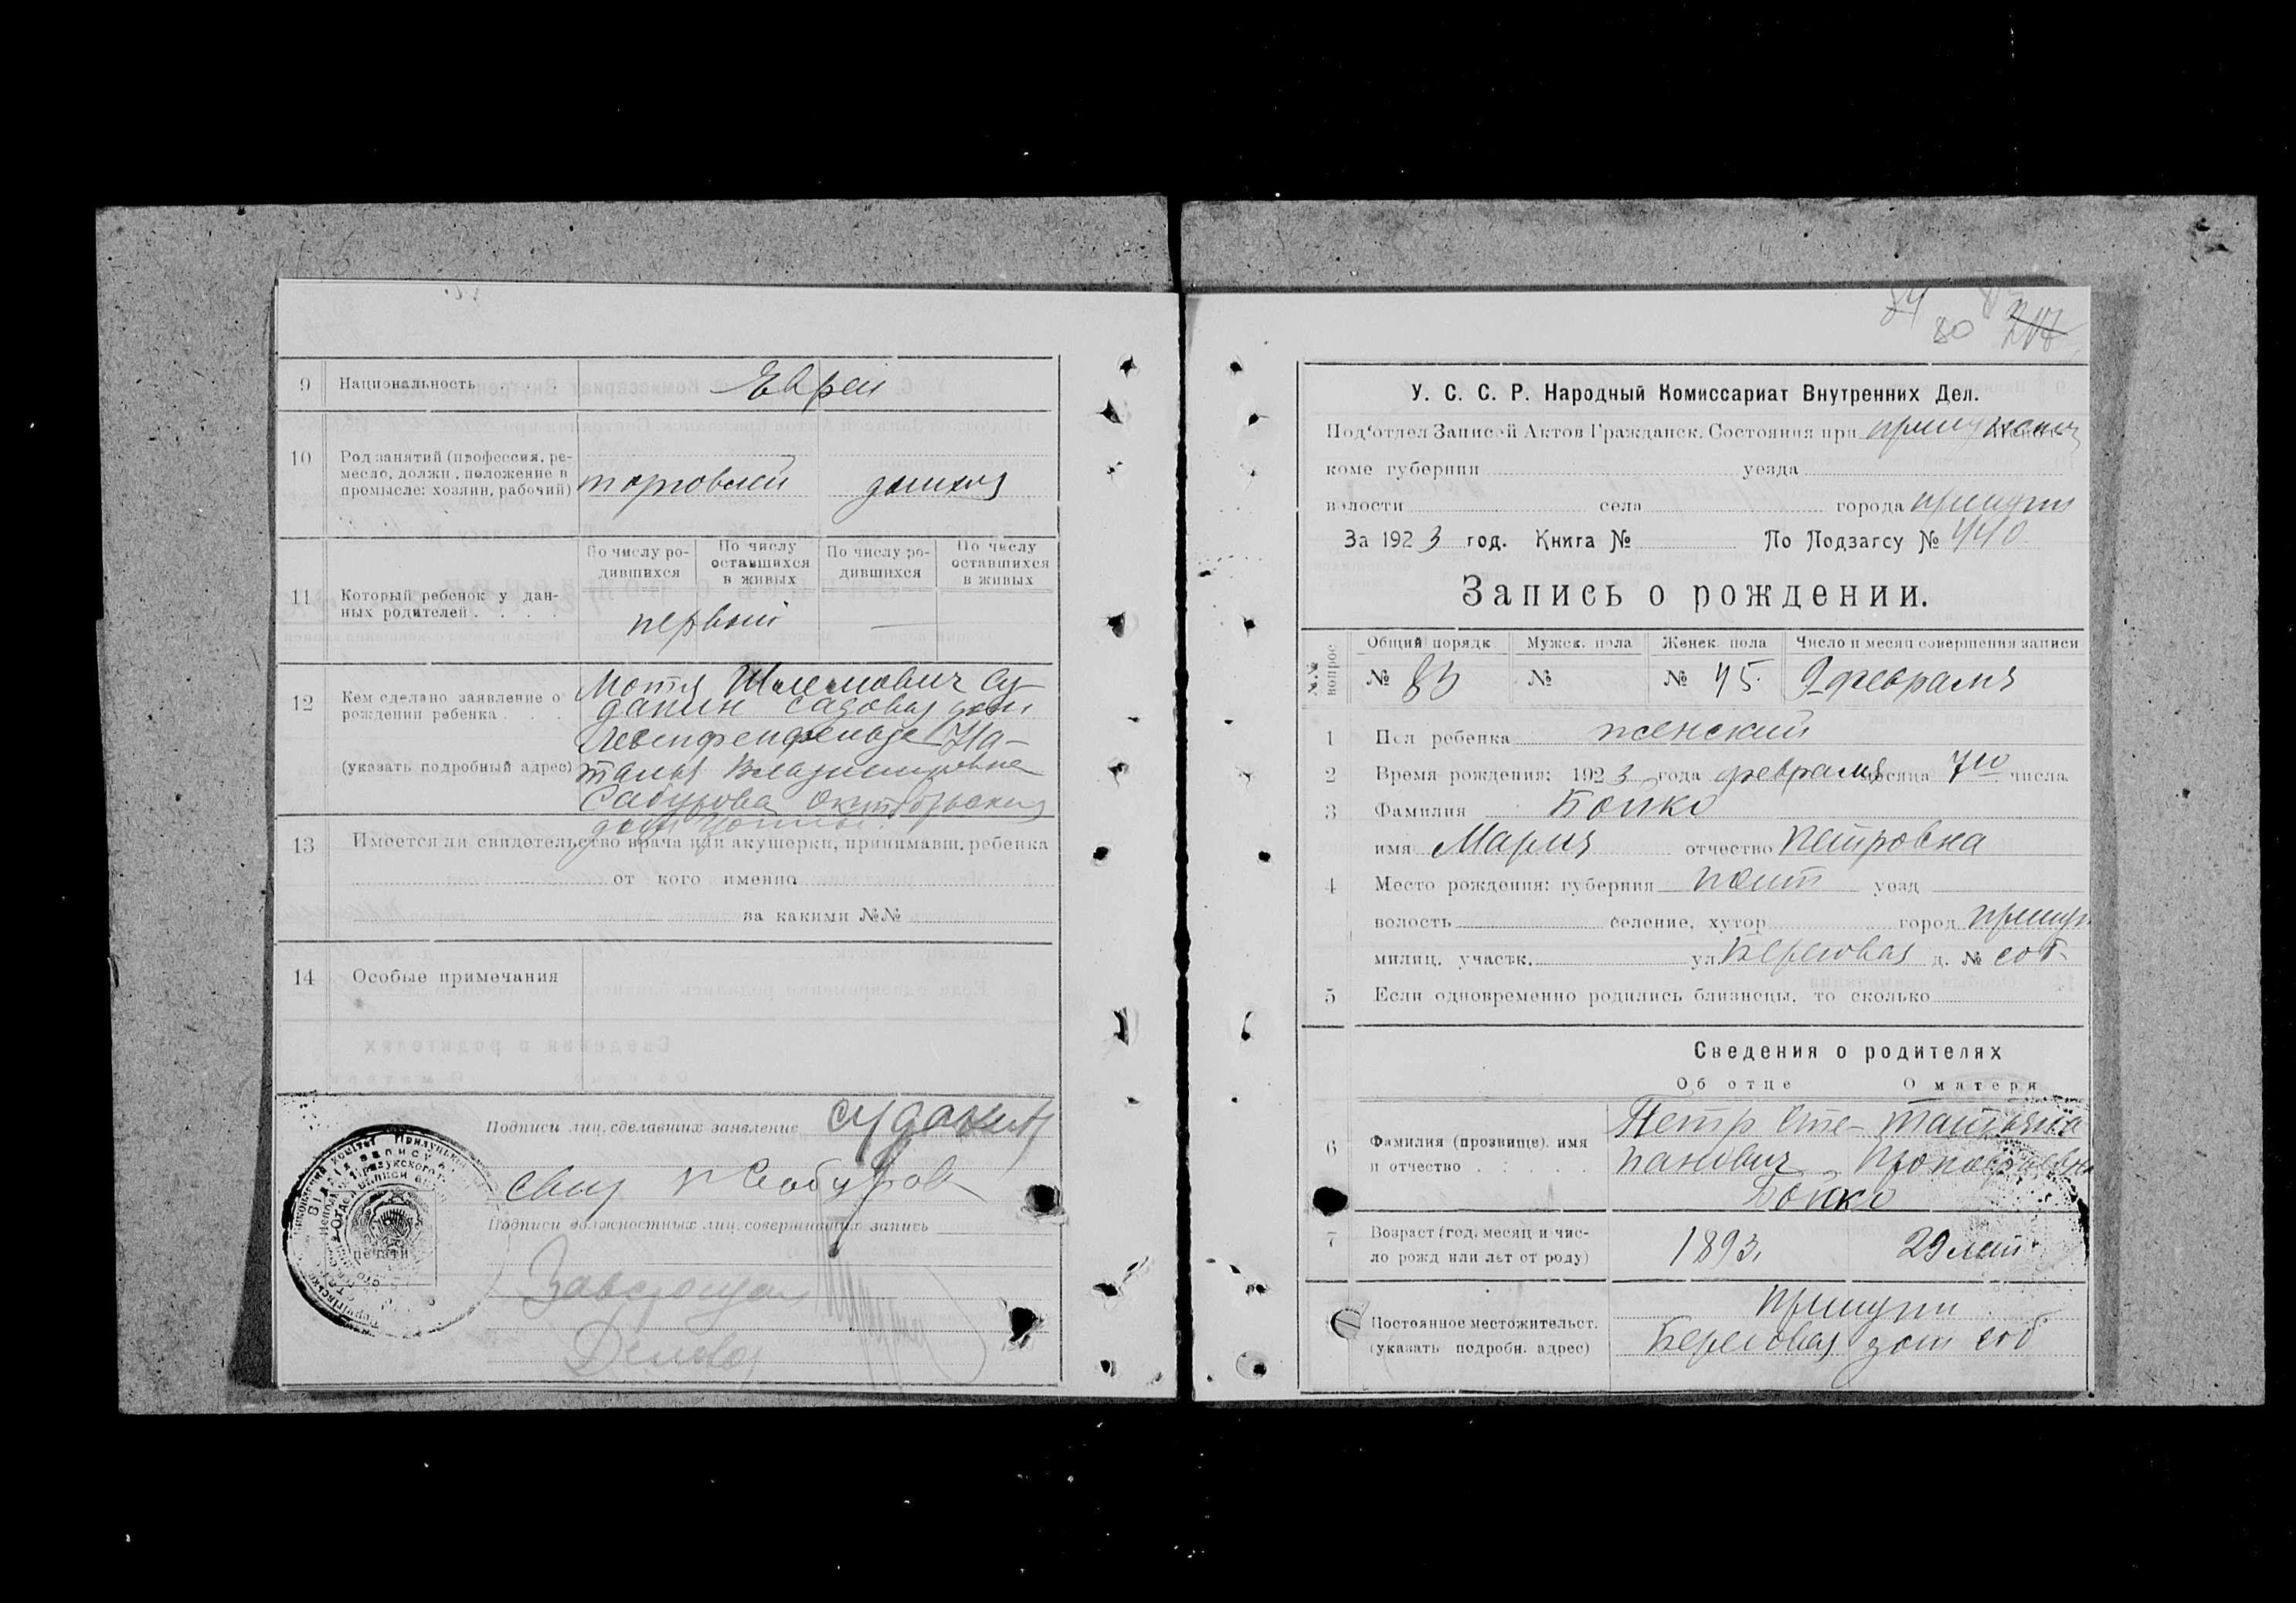 9 Национальность . . . Евреи
10 Род занятий (профессия, ремесло, должн., положение в промысле: хозяин, рабочий) торговлей домхоз
По числу родившихся По числу оставшихся в живых По числу родившихся По числу оставшихся в живых
11 Который ребенок у данных родителей . . . . первый —
12 Кем сделано заявление о рождении ребенка . . .
(указать подробный адрес)
Мотя Шлемович Су-
дакин Садовая дом
На-
талья Владимировна
Сабурова Октябрьская
дом
13 Имеется ли свидетельство врача или акушерки, принимавш. ребенка
от кого именно
за какими №№
14 Особые примечания
Подписи лиц, сделавших заявление Судакин
Сабурова
Подписи должностных лиц, совершивших запись
Заведующий
Делов
печати
84
80 217
У. С. С. Р. Народный Комиссариат Внутренних Дел.
Под'отдел Записей Актов Гражданск. Состояния при
коме губернии уезда
волости села города Прилуки
За 1923 год. Книга № По Подзагсу № 440
Запись о рождении.
№№ вопрос
Общий порядк Мужск. пола Женск. пола Число и месяц совершения записи
№ 83 № № 45. 9 февраля
1 Пол ребенка женский
2 Время рождения: 1923 года февраля месяца 7го числа.
3 Фамилия Бойко
имя Мария отчество Петровна
4 Место рождения: губерния Полт уезд
волость селение, хутор город Прилуки
милиц. участк. ул. Береговая д. № соб
5 Если одновременно родились близнецы, то сколько
Сведения о родителях
Об отце О матери
6 Фамилия (прозвище), имя и отчество . . . .
Петр Сте- Татьяна
панович
Бойко
7 Возраст (год, месяц и число рожд или лет от роду) 1893. 29 лет
Постоянное местожительст. (указать подробн. адрес)
Прилуки
Береговая дом соб